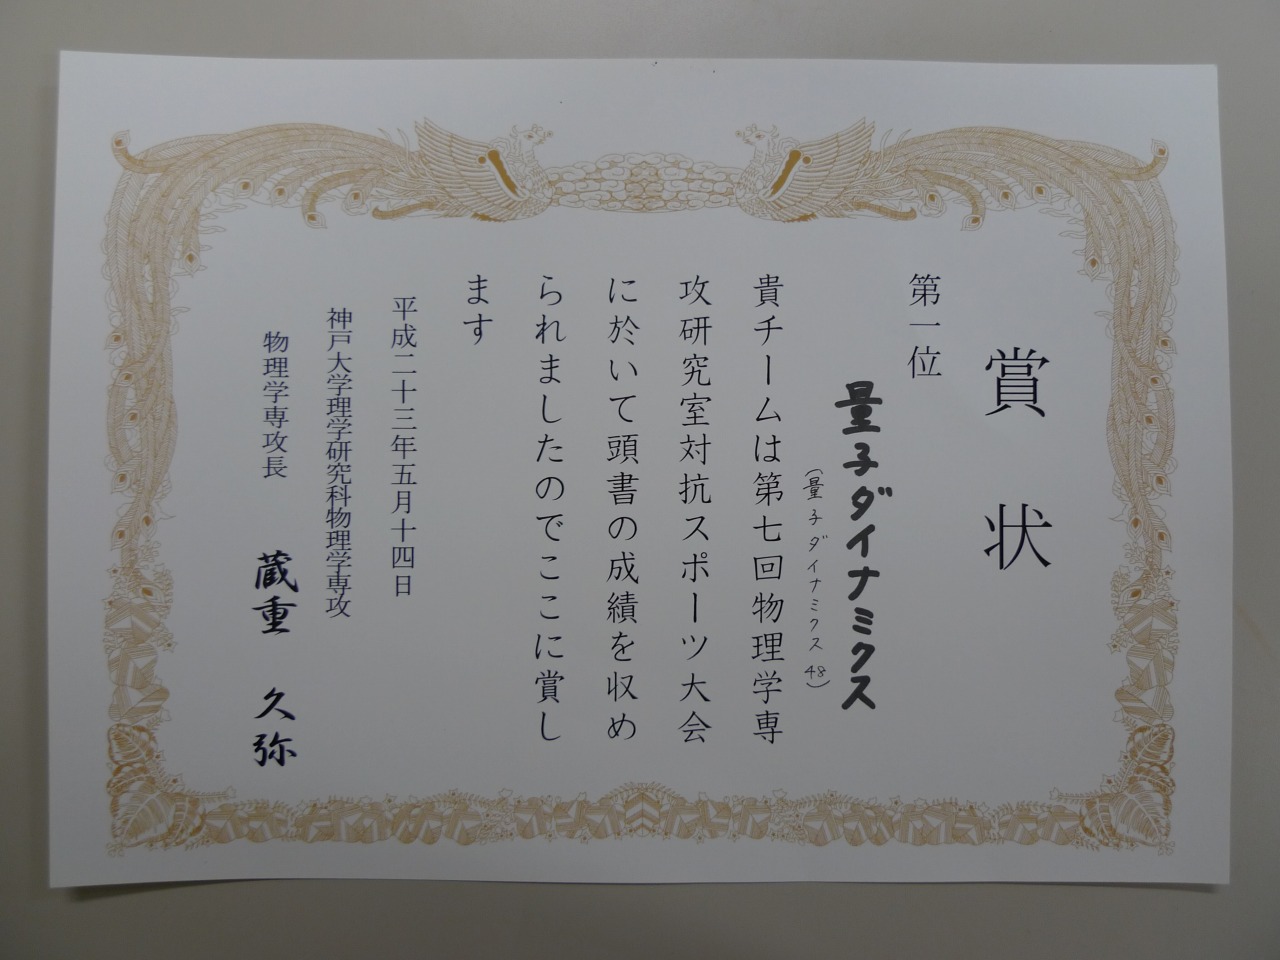 賞状
第一位
量子ダイナミクス
(量子ダイナミクス48)
貴チームは第七回物理学専
攻研究室対抗スポーツ大会
に於いて頭書の成績を収め
られましたのでここに賞し
ます
平成二十三年五月十四日
神戸大学理学研究科物理学専攻
物理学専攻長 蔵重 久弥